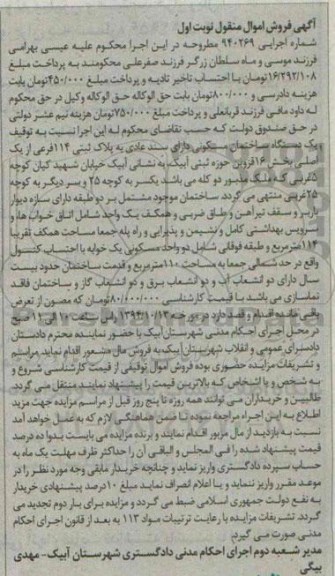 آگهی فروش اموال منقول نوبت اول
شماره اجرایی ۹۴۰۲۶۹ مطروحه در این اجرا محکوم علیه عیسی بهرامی
فرزند موسی و ماه سلطان زرگر فرزند صفرعلی محکومند به پرداخت مبلغ
۱۶/۲۹۲/۱۰۸ تومان با احتساب تاخیر تادیه و پرداخت مبلغ ۴۵۰/۰۰۰ تومان بابت
هزینه دادرسی و ۸۰۰/۰۰۰ تومان بابت حق الوکاله حق الوکاله وکیل در حق محکوم
له داود مافی فرزند قربانعلی و پرداخت مبلغ ۷۵۰/۰۰۰ تومان هزینه نیم عشر دولتی
در حق صندوق دولت که حسب تقاضای محکوم له این اجرا نسبت به توقیف
یک دستگاه ساختمان مسکونی دارای سند عادی به پلاک ثبتی ۱۱۴ فرعی از یک
اصلی بخش ۱۶ قزوین حوزه ثبتی آبیک به نشانی آبیک خیابان شهید کیان کوچه
۵ غربی که ملک مذبور دو کله می باشد یکسر به کوچه ۲۵ و سر دیگر به کوچه
۲۵ غربی منتهی می گردد. ساختمان موجود مشتمل بر دو طبقه دارای سازه دیوار
باربر و سقف تیرآهن و طاق ضربی و همکف یک واحد شامل اتاق خواب ها و
سرویس بهداشتی کامل و نشیمن و پذیرایی و راه پله جمعا مساحت همکف تقریبا
۱۱۴ مترمربع و طبقه فوقانی شامل دو واحد مسکونی یک خوابه با احتساب کنسول
واقع در حد شمالی جمعا به مساحت ۱۱۰ مترمربع و قدمت ساختمان حدود بیست
سال دارای دو انشعاب آب و دو انشعاب برق و دو انشعاب گاز و ساختمان فاقد
نماسازی می باشد با قیمت کارشناسی ۸۰/۰۰۰/۰۰۰ تومان که مصون از تعرض
باقی مانده اقدام و قصد دارد در مورخه ۱۳۹۴/۱۰/۱۳ از ساعت ۱۰ الی ۱۱ صبح
در محل اجرای احکام مدنی شهرستان آبیک با حضور نماینده محترم دادستان
دادسرای عمومی و انقلاب شهرستان آبیک به فروش مال مذکور اقدام نماید. مراسم
و تشریفات مزایده حضوری بوده فروش اموال توقیفی از قیمت کارشناسی شروع و
به شخص و یا اشخاص که بالاترین قیمت را پیشنهاد نمایند منتقل می گردد.
طالبین و خریداران می توانند همه روزه تا پنج روز قبل از مراسم مزایده جهت مزید
اطلاع به این اجراء مراجعه نموده تا ضمن هماهنگی لازم که به عمل خواهد آمد
نسبت به بازدید از مال مزبور اقدام نمایند و برنده مزایده می بایست بدوا ده درصد
قیمت پیشنهاد شده را فی المجلس و الباقی آن را حداکثر ظرف مهلت یک ماه به
حساب سپرده دادگستری واریز نماید و چنانچه خریدار مابقی وجه مورد نظر را در
موعد مقرر واریز ننماید و یا اعلام انصراف نماید مبلغ ۱۰ درصد پیشنهادی خریدار
به نفع دولت جمهوری اسلامی ضبط می گردد و مزایده برای بار دوم تجدید می
گردد. تشریفات مزایده با رعایت ترتیبات مواد ۱۱۳ به بعد از قانون اجرای احکام
مدنی صورت می گیرد.
مدیر شعبه دوم اجرای احکام مدنی دادگستری شهرستان آبیک- مهدی
بیگی